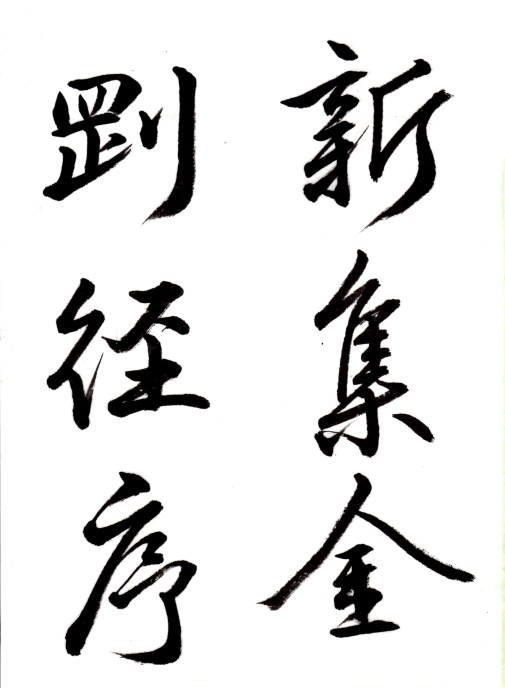 新集金
剛径序